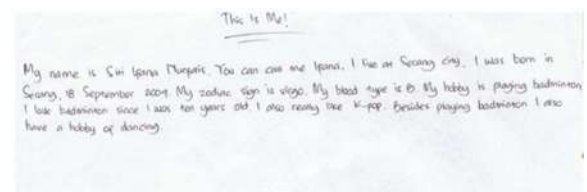 This Is Me!
My name is Siti Ipana Nurpais. You can call me Ipana. I live on Serang city. I was born in
Serang, 18 September 2004. My zodiac sign is virgo. My blood type is B. My hobby is playing badminton
I love badminton since I was ten years old I also really like K-pop. Besides playing badminton I also
have a hobby of dancing.